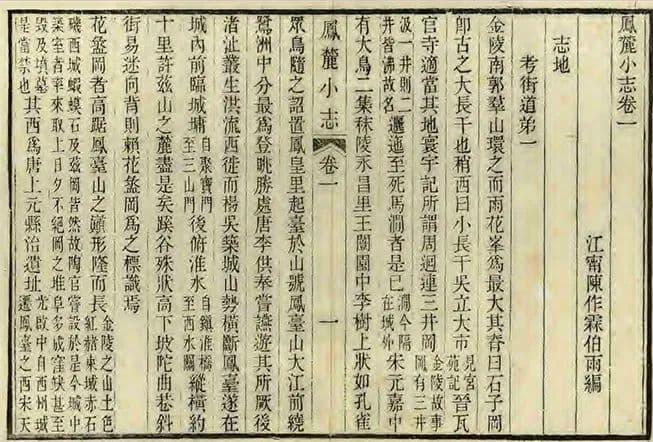 鳳麓小志卷一
江甯陳作霖伯雨編
志地
考街道弟一
金陵南郭羣山環之而雨花峯為最大其脊曰石子岡
卽古之大長干也稍西曰小長干吳立大市見宮苑記晉瓦
官寺適當其地寰宇記所謂周迴連三井岡金陵故事岡有三井
汲一井則二井皆沸故名邐迤至死馬澗者是已澗今隔在城外宋元嘉中
有大鳥二集秣陵永昌里王園中李樹上狀如孔雀
鳳麓小志 卷一 一
眾鳥隨之詔置鳳皇里起臺於山號鳳臺山大江前繞
鷺洲中分最為登眺勝處唐李供奉嘗讌遊其所厥後
渚沚叢生淇流西徙而楊吳築城山勢橫斷鳳臺遂在
城內前臨城墉自聚寶門至三山門後俯淮水自鎮淮橋至西水關縱橫約
十里許茲山之麓盡是矣蹊谷殊狀高下坡陀曲巷斜
街易迷向背則賴花盝岡為之標識焉
花盝岡者高踞鳳臺山之巔形隆而長金陵之山土色紅赭東城赤石
磯西城蝦蟆石及茲岡皆然故陶官嘗設於是今城中築室者率來取土日夕不絕岡之堆阜多成窪缺甚至
毀及墳墓是當禁也其西為唐上元縣治遺址光啟中自西州城遷鳳臺之西宋天